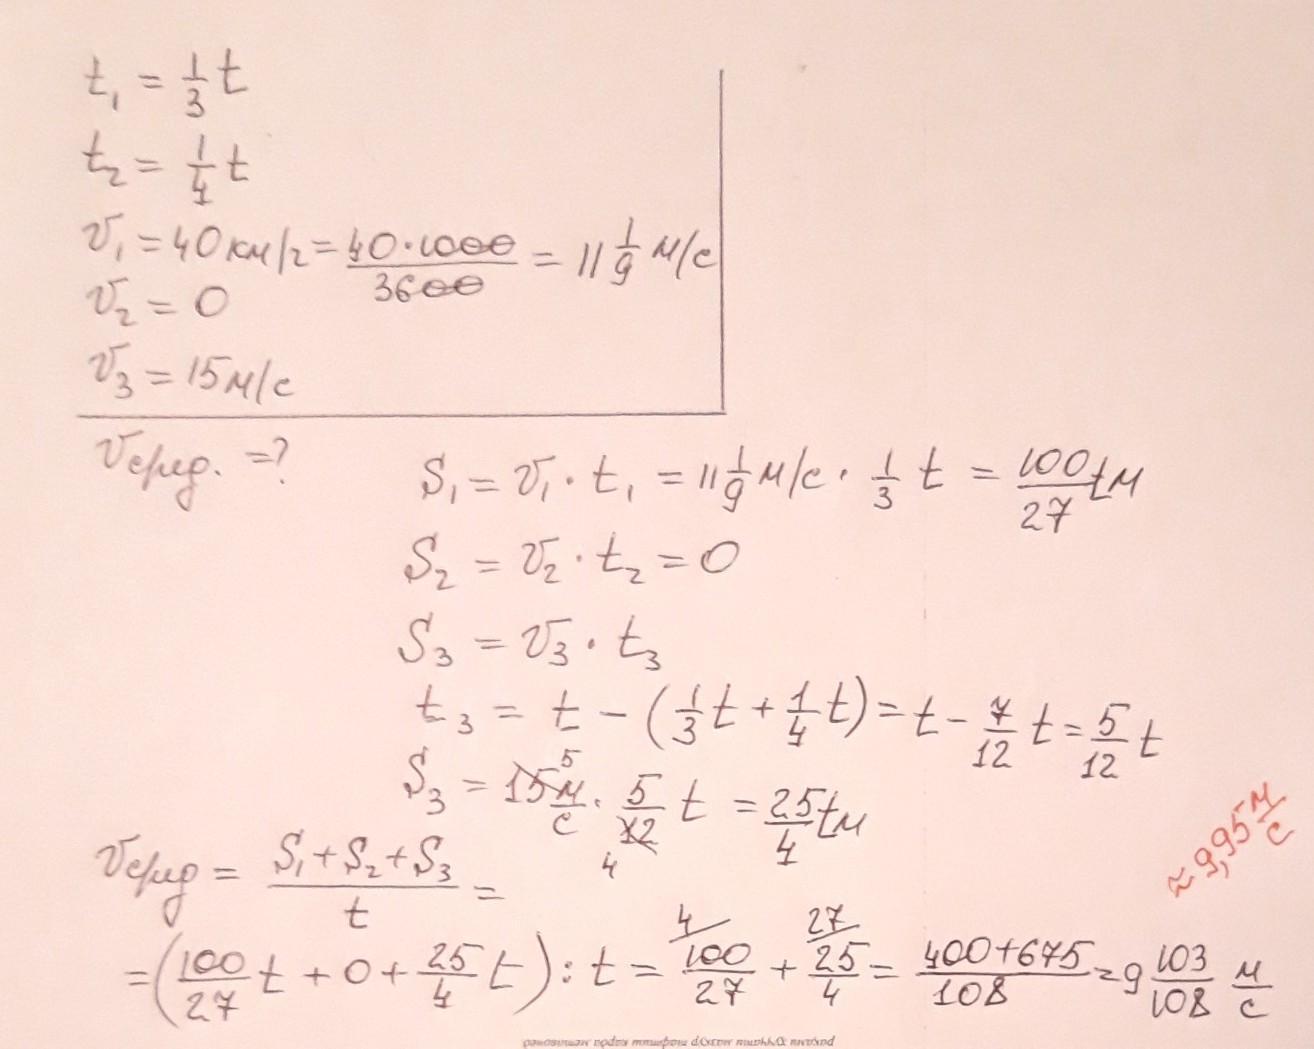 t₁ = 1/3 t
t₂ = 1/4 t
v₁ = 40 км/г = 40·1000/3600 = 11 1/9 м/с
v₂ = 0
v₃ = 15 м/с
vсред. = ?
S₁ = v₁ · t₁ = 11 1/9 м/с · 1/3 t = 100/27 t м
S₂ = v₂ · t₂ = 0
S₃ = v₃ · t₃
t₃ = t − (1/3 t + 1/4 t) = t − 7/12 t = 5/12 t
S₃ = 15 5 м/с · 5/12 4 t = 25/4 t м
≈ 9,95 м/с
vсред = (S₁ + S₂ + S₃)/t =
= (100/27 t + 0 + 25/4 t) : t = 4/ 100/27 + 27/ 25/4 = (400+675)/108 = 9 103/108 м/с